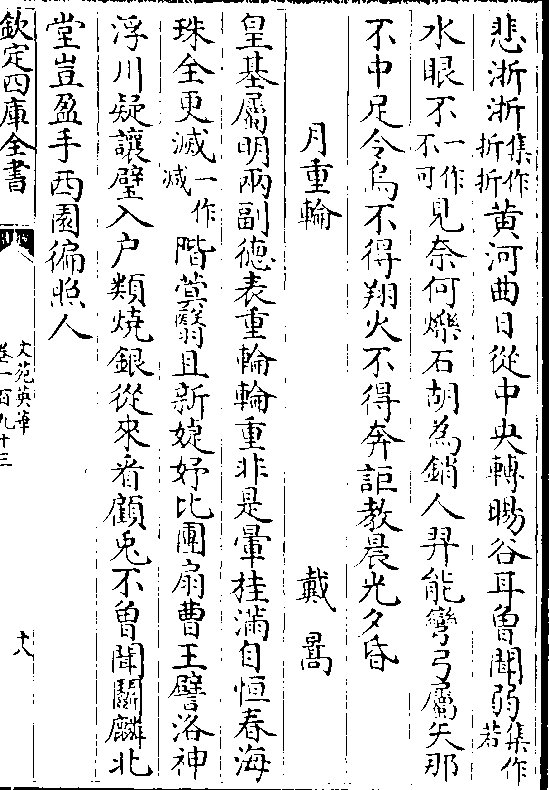 悲浙浙集作折折黄河曲日從中央轉暘谷耳曾聞弱集作若
水眼不一作不可見奈何爍石胡為銷人羿能彎弓屬矢那
不中足令烏不得翔火不得奔詎教晨光夕昏
月重輪 戴暠
皇基屬明兩副德表重輪輪重非是暈桂滿自恒春海
珠全更滅一作減階蓂翳且新婕妤比團扇曹王譬洛神
浮川疑讓璧入户類燒銀從來看顧兎不曾聞鬭麟北
堂豈盈手西園徧照人
欽定四庫全書 文苑英華卷一百九十三 十八